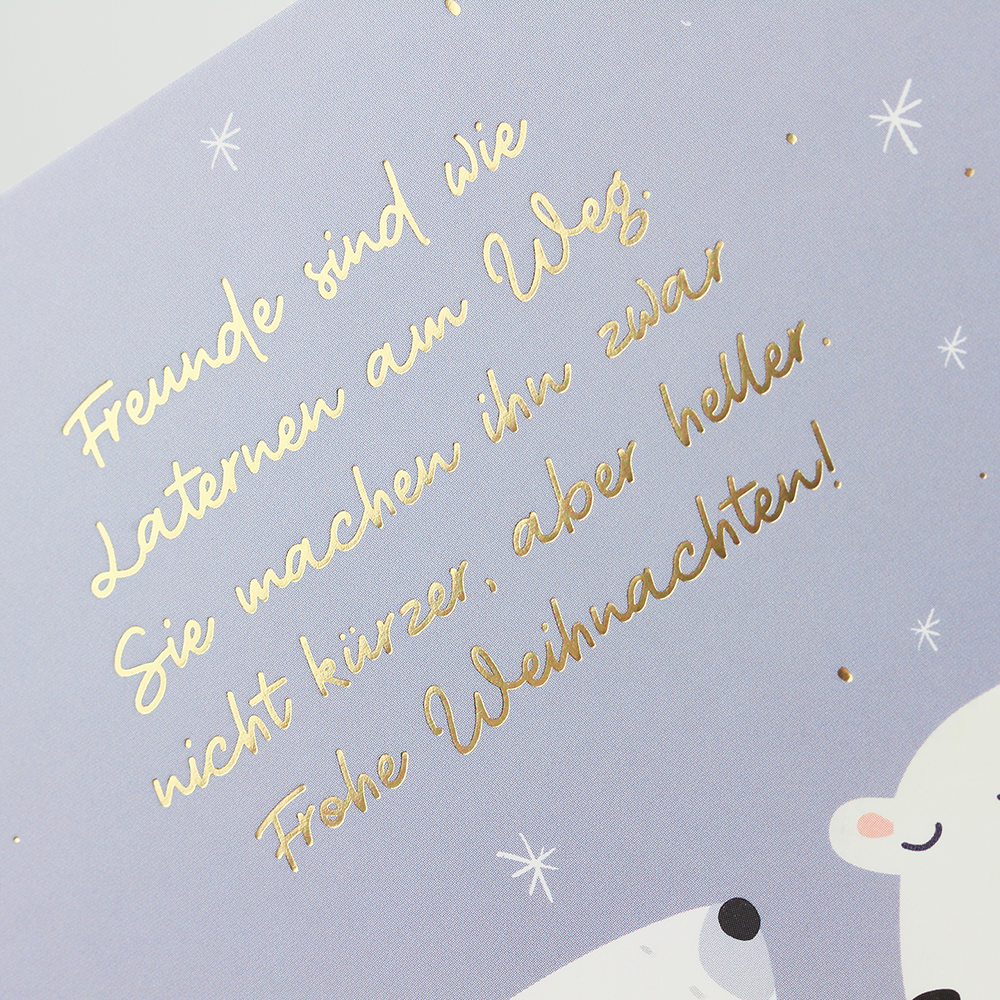 Freunde sind wie
Laternen am Weg.
Sie machen ihn zwar
nicht kürzer, aber heller.
Frohe Weihnachten!